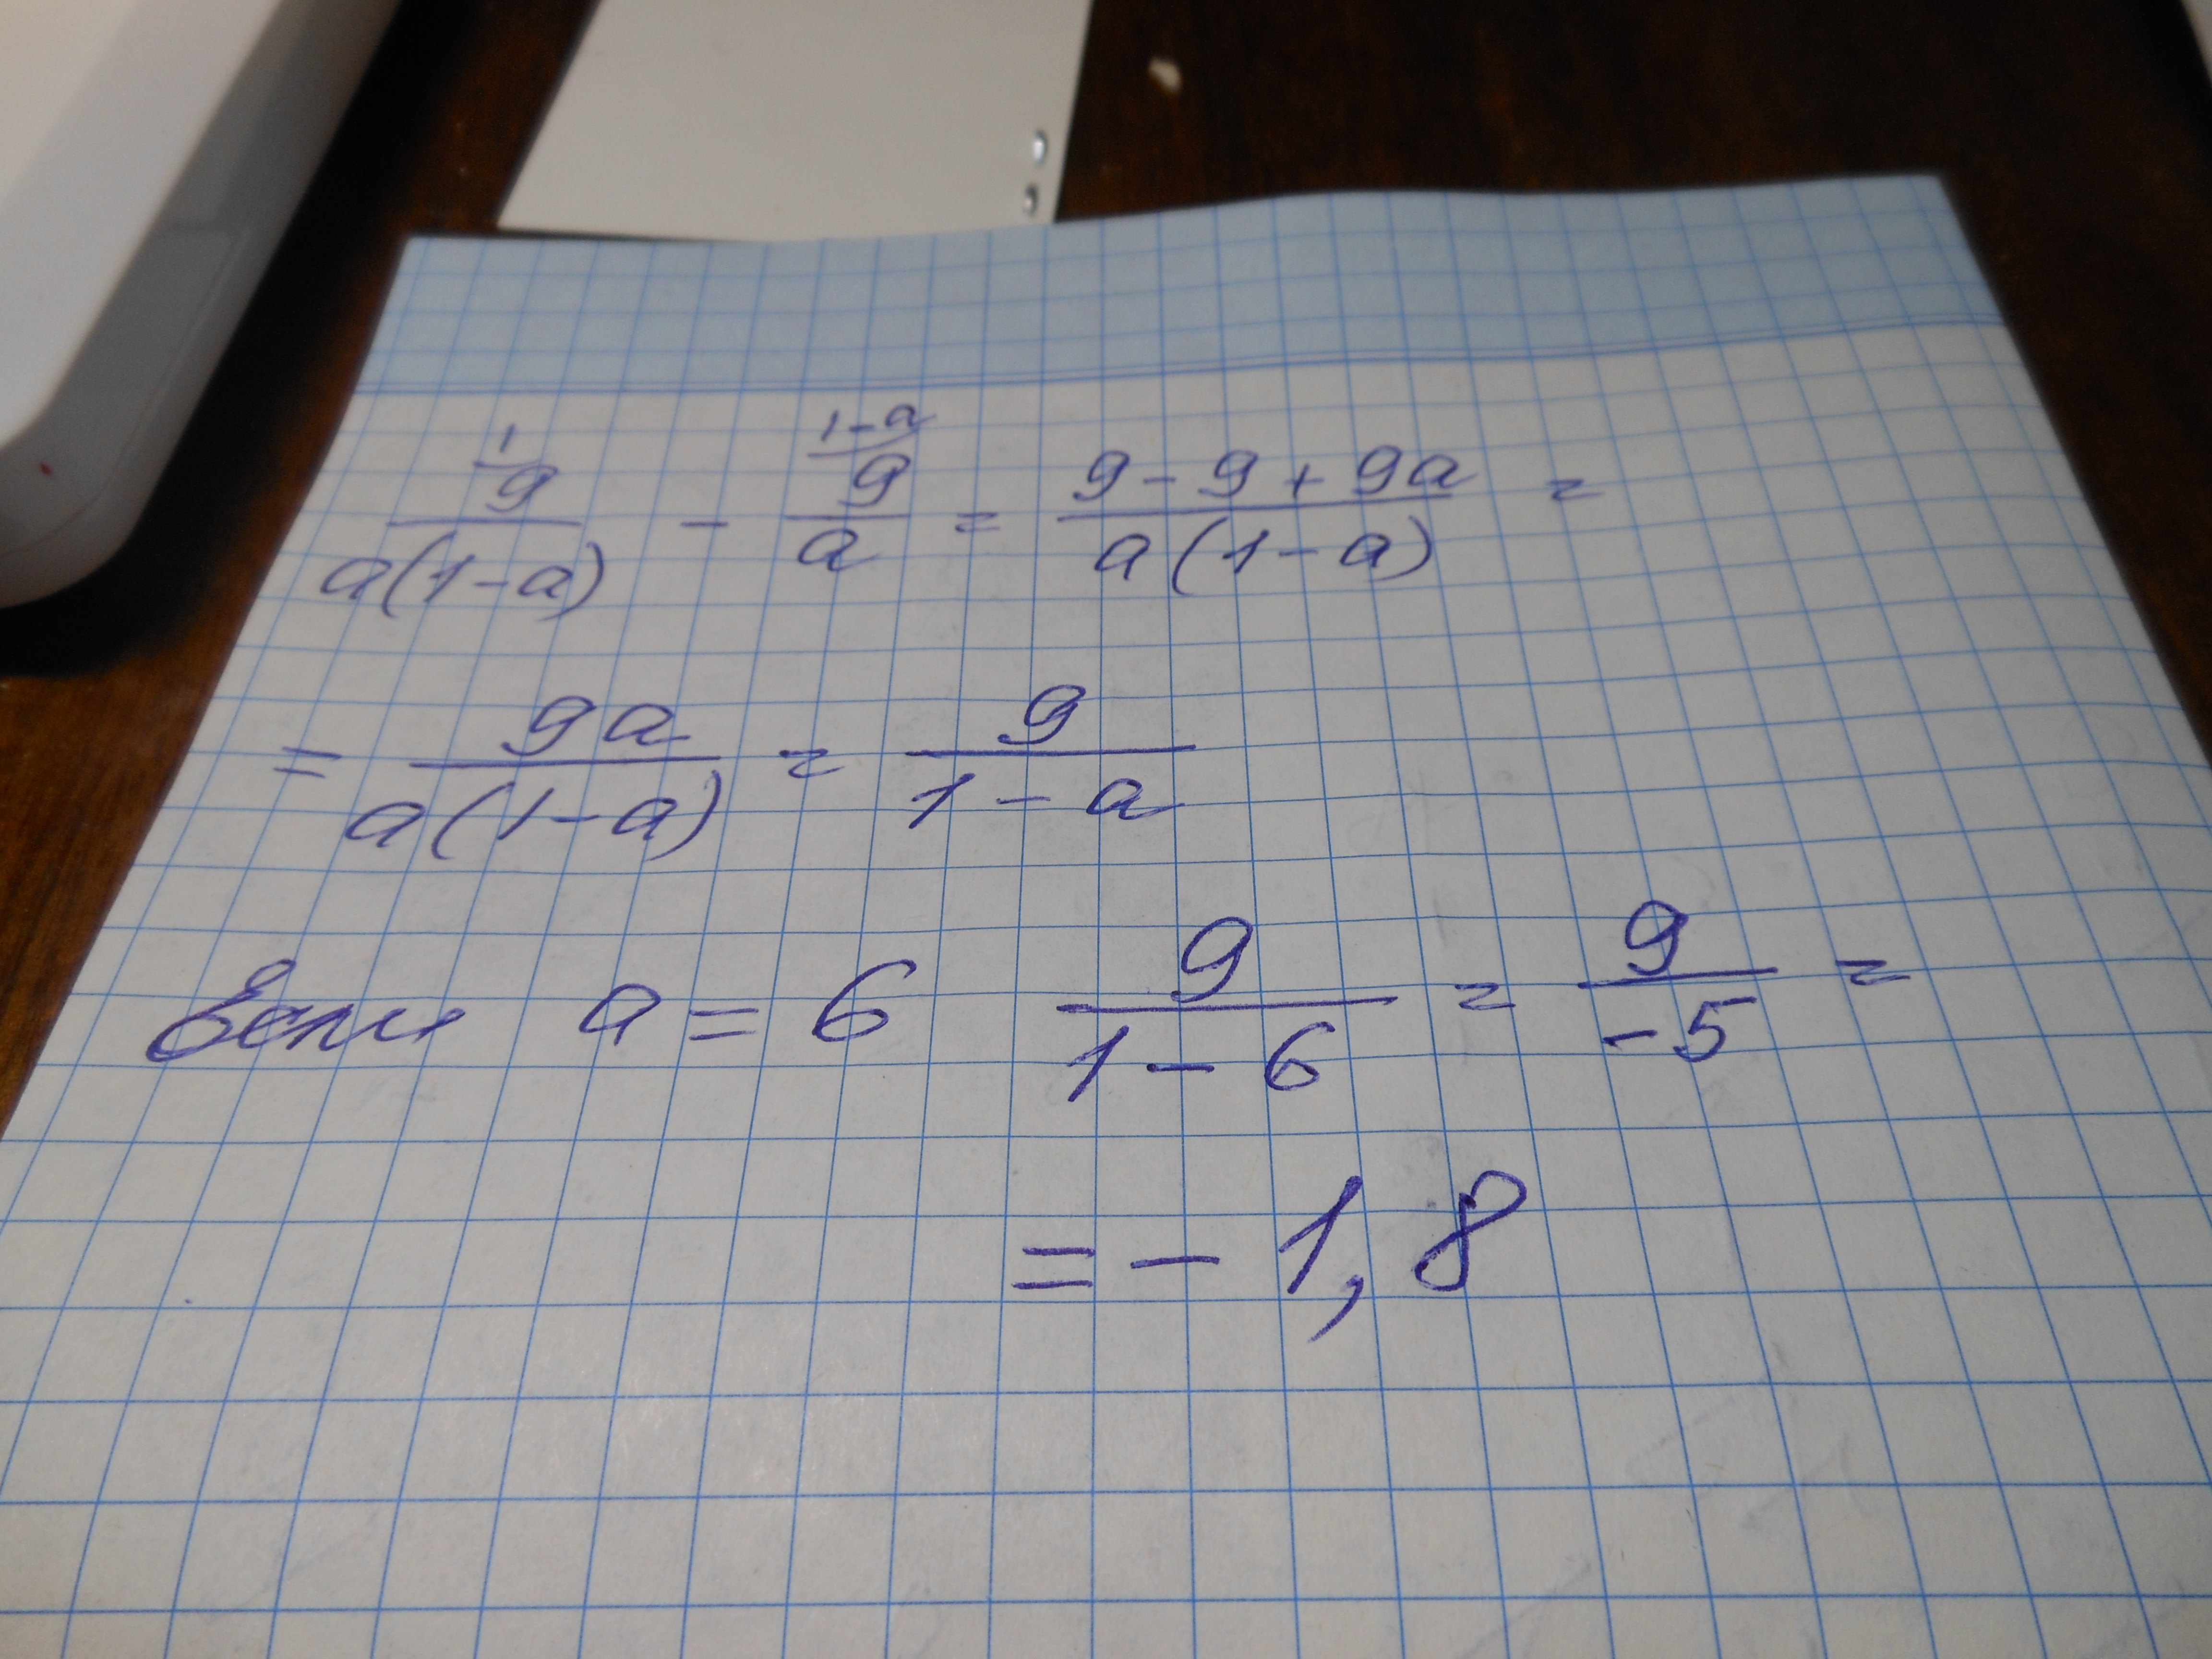 1/ 9 / a(1-a) - 1-a/ 9 / a = 9 - 9 + 9a / a(1-a) =
= 9a / a(1-a) = 9 / 1-a
Если a = 6 9 / 1-6 = 9 / -5 =
= - 1,8